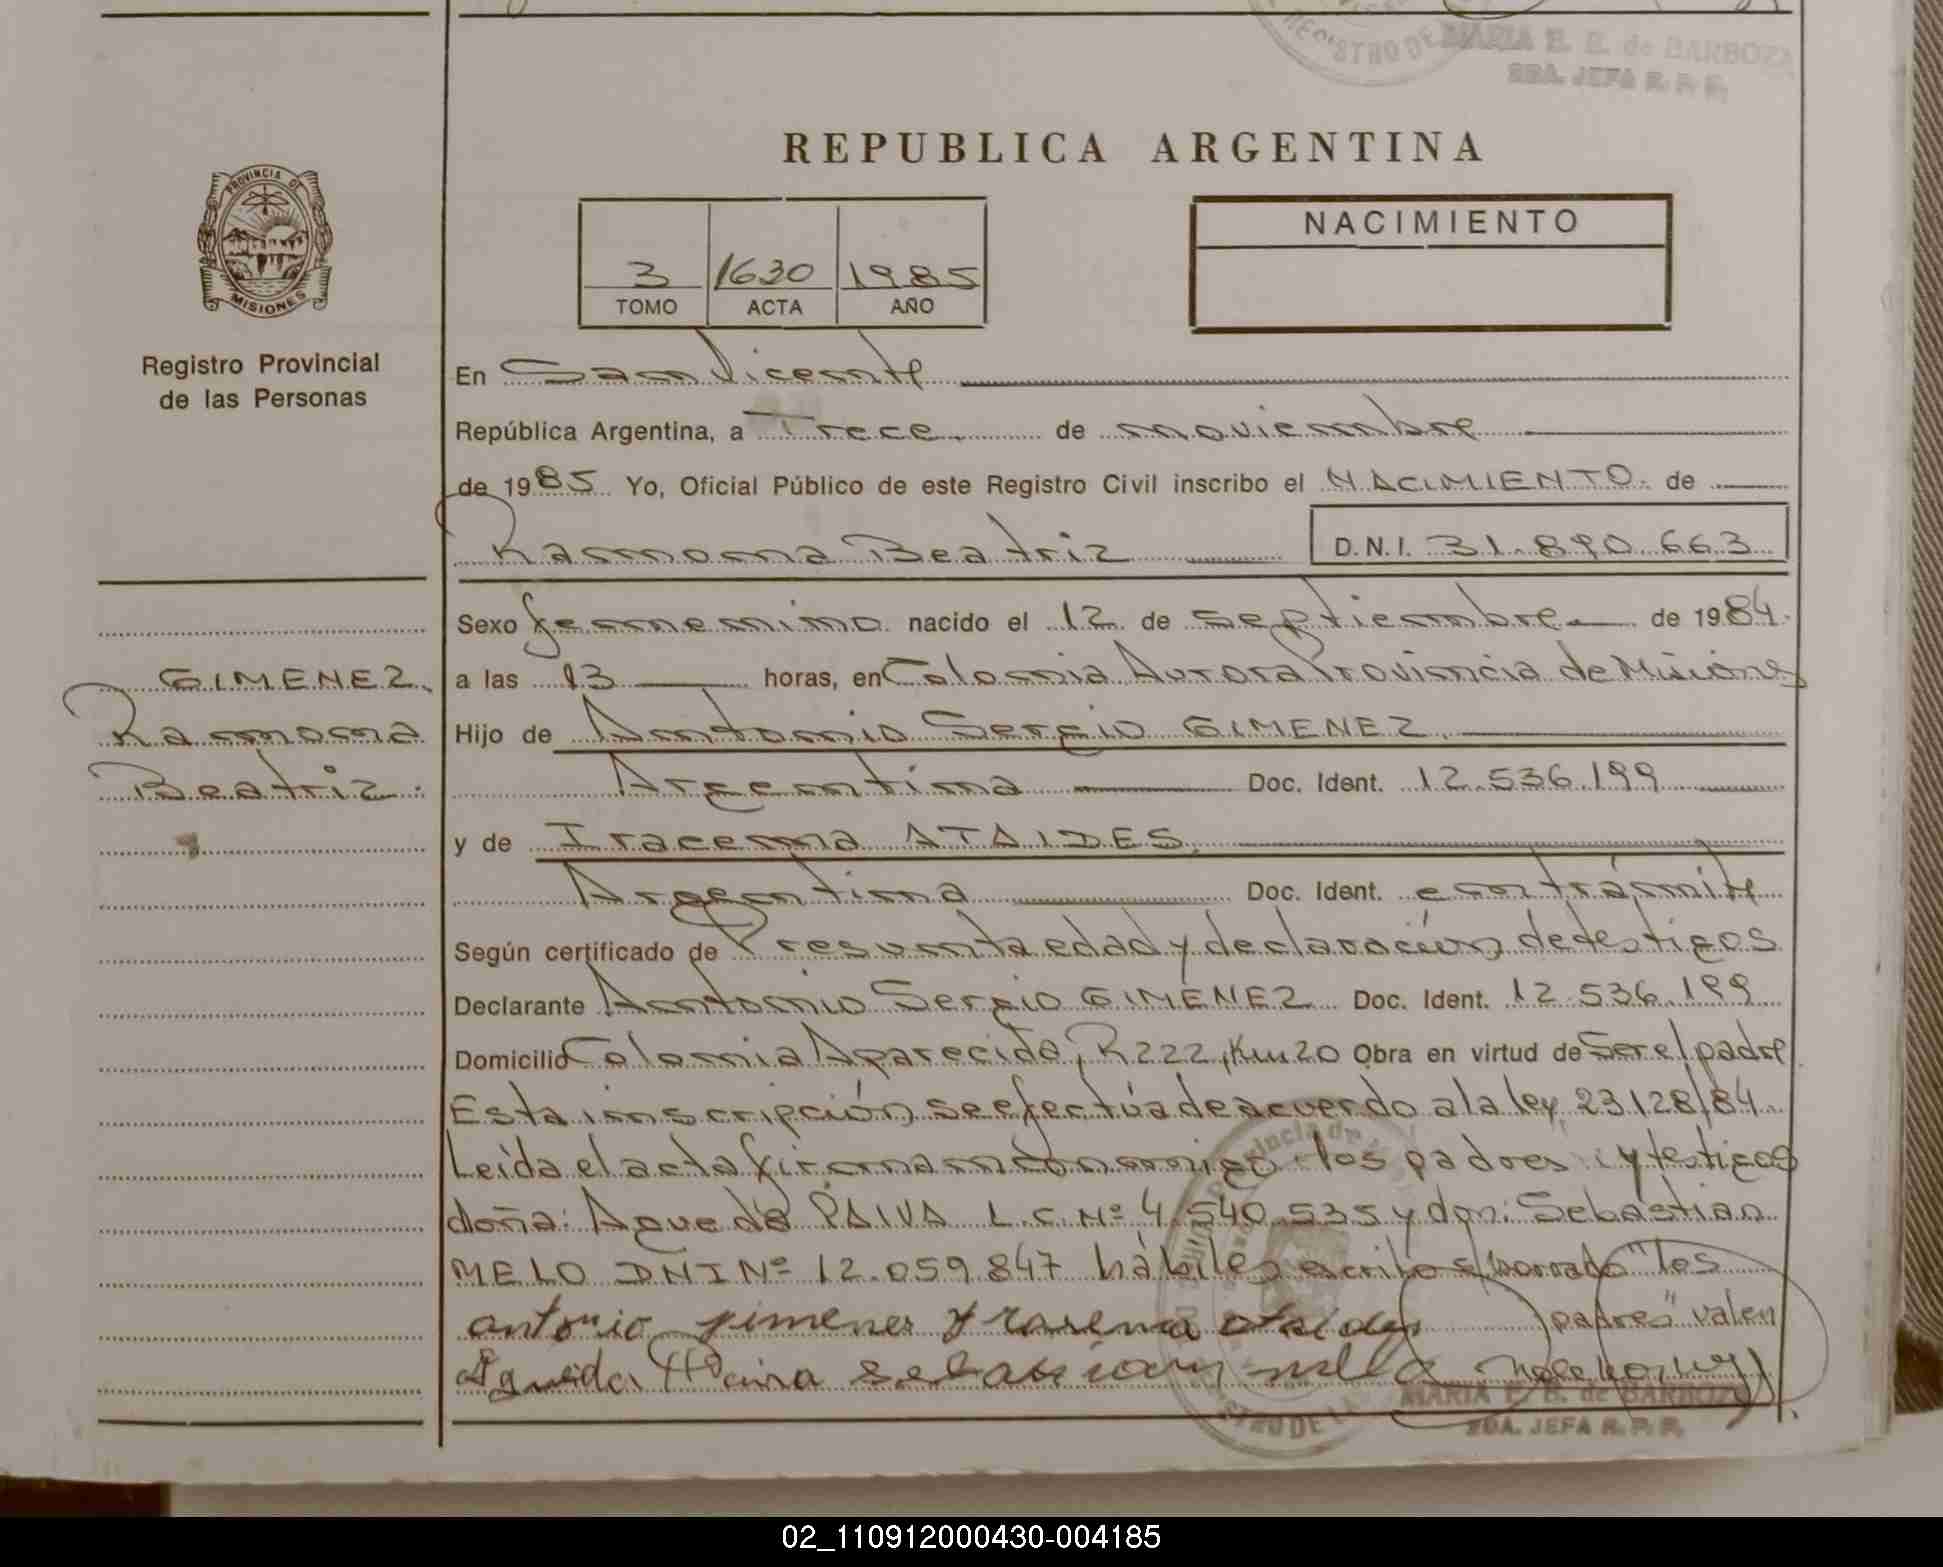 REGISTRO DE
MARIA E. B. de BARBOZA
SDA. JEFA R. P. P.
REPUBLICA ARGENTINA
PROVINCIA DE
MISIONES
Registro Provincial
de las Personas
3 1630 1985
TOMO ACTA AÑO
NACIMIENTO
En San Vicente
República Argentina, a Trece de noviembre
de 1985 Yo, Oficial Público de este Registro Civil inscribo el NACIMIENTO de
Ramona Beatriz D.N.I. 31.890.663
Sexo femenino nacido el 12 de septiembre de 1984
GIMENEZ
Ramona
Beatriz
a las 13 horas, en Colonia Aurora Provincia de Misiones
Hijo de Antonio Sergio GIMENEZ
Argentina Doc. Ident. 12.536.199
y de Iracema ATAIDES
Argentina Doc. Ident. en trámite
Según certificado de Presunta edad y declaración de testigos
Declarante Antonio Sergio GIMENEZ Doc. Ident. 12.536.199
Domicilio Colonia Aparecida, R222, Km 20 Obra en virtud de Ser el padre
Esta inscripción se efectúa de acuerdo a la ley 23.128/84
Leida el acta firman conmigo los padres y testigos
doña: Agueda PAIVA L.C. Nº 4.540.535 y don: Sebastian
MELO DNI Nº 12.059.847 hábiles escrito s/borrado "los
padres" valen
antonio gimenes yrasema ataides
Agueda Paiva sebastian melo
MARIA E. B. de BARBOZA
SDA. JEFA R. P. P.
02_110912000430-004185